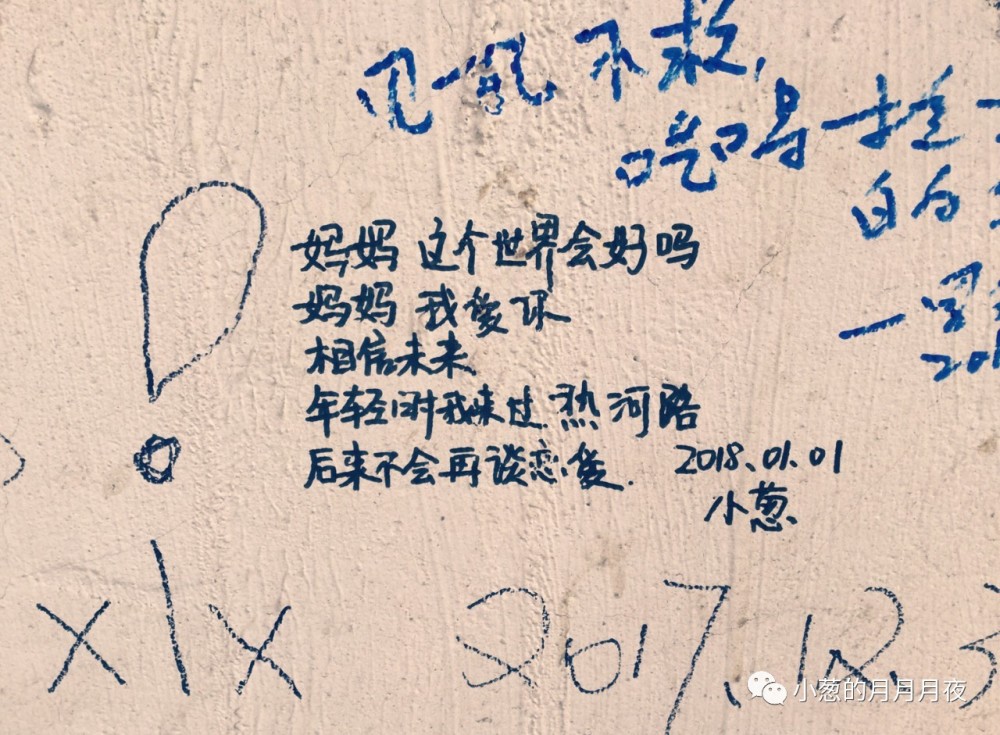 不救,
吃吗
妈妈 这个世界会好吗
妈妈 我爱你
相信未来
年轻时我来过 热河路
后来不会再谈恋爱.
2018.01.01
小葱
x1x
2017.12.3
小葱的月月月夜